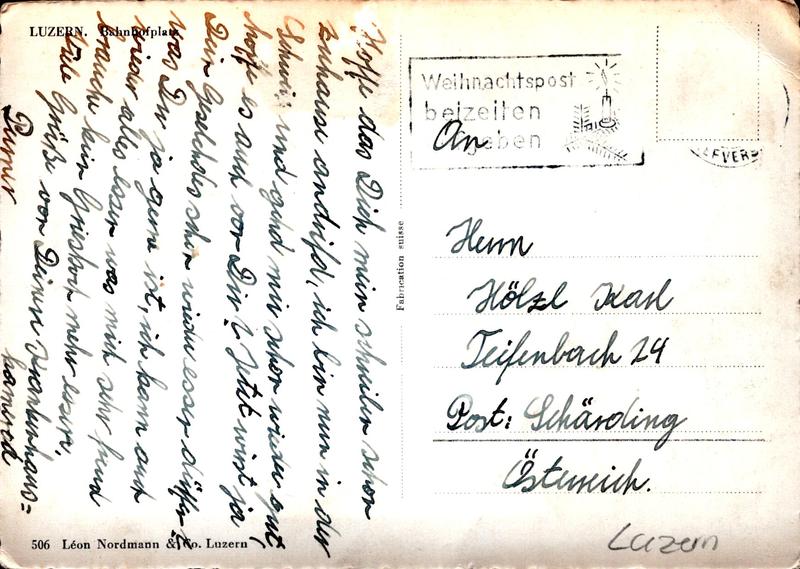 LUZERN. Bahnhofplatz
Hoffe das Dich mein schreiben schon
zuhause andrifd, ich bin nun in der
Schweiz und gehd mir schon wieder gut,
hoffe es auch von Dir? Jetzt wirst ja
Dein geselchtes schon wieder essen dürfen?
was Du ja gern ist, ich kann auch
wieder alles essen was mich sehr freud
brauche kein Grieskoch mehr essen.
Viele Grüße von Deinem Krankenhaus=
kamerad
506 Léon Nordmann & Co. Luzern
Fabrication suisse
Weihnachtspost
beizeiten
aufgeben
An
Herrn
Hölzl Karl
Teifenbach 24
Post: Schärding
Österreich.
Luzern